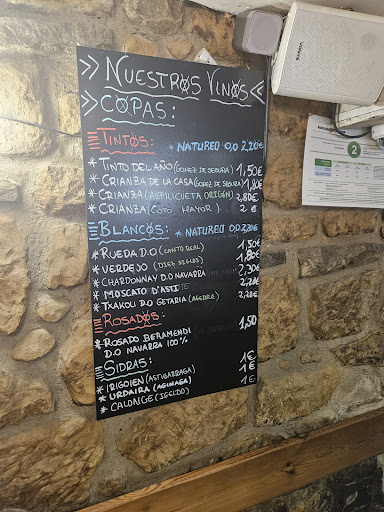 >> NUESTROS VINOS <<
COPAS:
TINTOS: + NATUREO 0,0 2,20€
* TINTO DEL AÑO (GOMEZ DE SEGURA) 1,50€
* CRIANZA DE LA CASA (GOMEZ DE SEGURA) 1,90€
* CRIANZA (AZPILICUETA ORIGEN) 2,80€
* CRIANZA (COTO MAYOR) 2€
BLANCOS: * NATUREO 0,0 2,20€
* RUEDA D.O (CANTO REAL) 1,50€
* VERDEJO (DIEZ SIGLOS) 1,80€
* CHARDONNAY D.O NAVARRA 2,20€
* MOSCATO D'ASTI 2,20€
* TXAKOLI D.O GETARIA (AGERRE) 2,20€
ROSADOS: 1,50
* ROSADO BERAMENDI
D.O NAVARRA 100%
SIDRAS:
* IRIGOIEN (ASTIGARRAGA) 1€
* URDAIRA (AGINAGA) 1€
* CALONGE (IGELDO) 1€
2